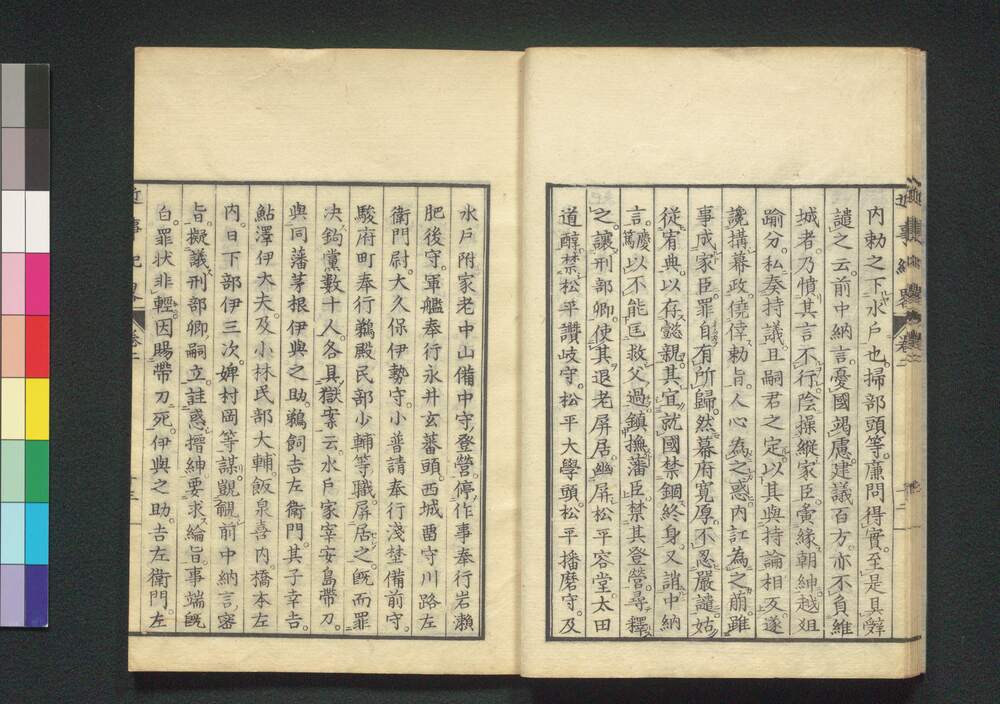 內勅之下水戶也掃部頭等廉問得實至是具辭
譴之云前中納言憂國竭慮建議百方亦不負維
城者乃憤其言不行陰操縱家臣夤緣朝紳越俎
踰分私奏持議且嗣君之定以其與持論相友遂
讒搆幕政僥倖勅旨人心為之惑內訌為之萠雖
事成家臣罪自有所歸然幕府寬厚不忍嚴譴姑
從宥典以存懿親其宜就國禁錮終身又誚中納
言慶篤以不能匡救父過鎮撫藩臣禁其登營尋釋
之讓刑部卿使其退老屏居幽屏松平容堂太田
道醇禁松平讚岐守松平大學頭松平播磨守及
水戶附家老中山備中守登營停作事奉行岩瀨
肥後守軍艦奉行永井玄蕃頭西城畱守川路左
衛門尉大久保伊勢守小普請奉行淺埜備前守
駿府町奉行鵜殿民部少輔等職屏居之旣而罪
决鈎黨數十人各具獄案云水戶家宰安島帶刀
與同藩茅根伊與之助鵜飼吉左衛門其子幸吉
鮎澤伊大夫及小林民部大輔飯泉喜內橋本左
內日下部伊三次婢村岡等謀覬覦前中納言審
旨擬議刑部卿嗣立註惑搢紳要求綸旨事端旣
白罪狀非輕因賜帶刀死伊與之助吉左衛門左